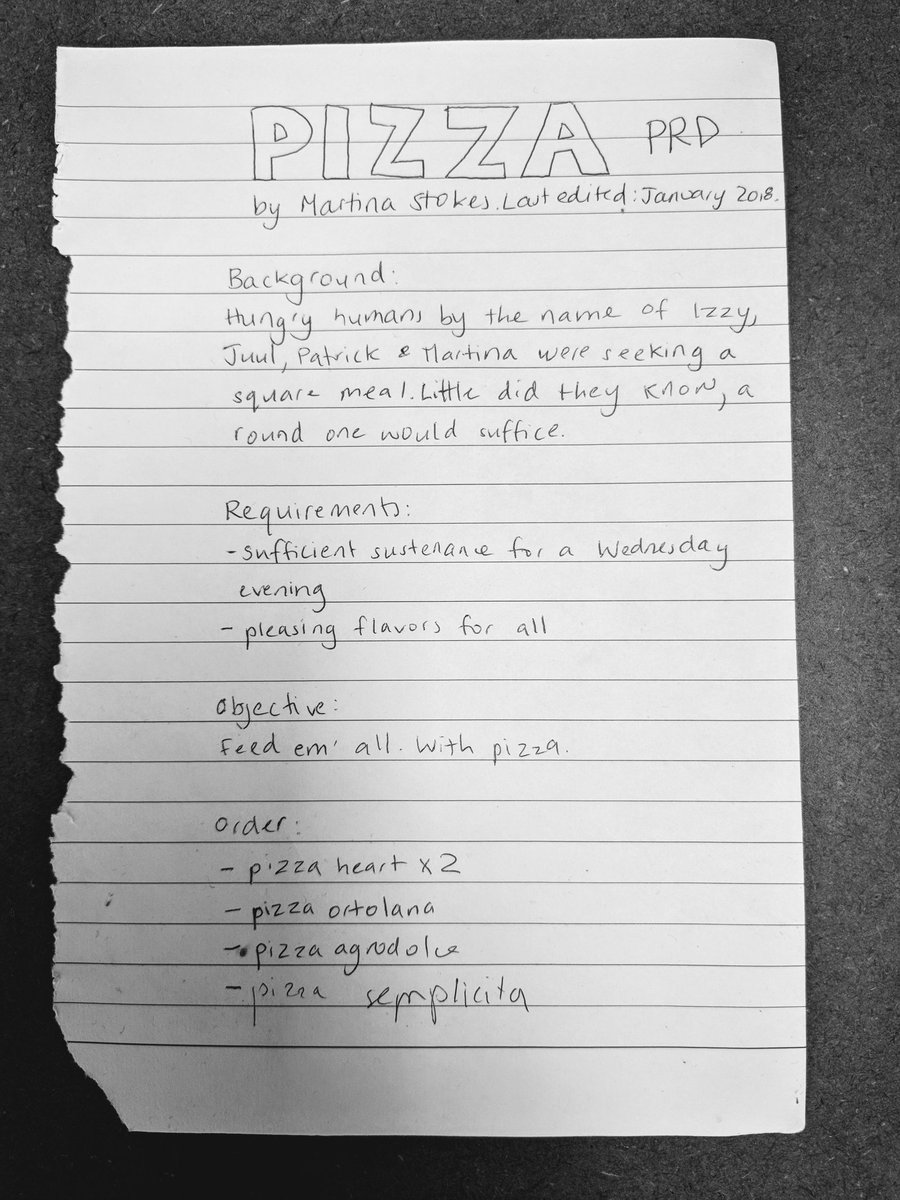 PIZZA PRD
by Martina Stokes. Last edited: January 2018.
Background:
Hungry humans by the name of Izzy,
Juul, Patrick & Martina were seeking a
square meal. Little did they know, a
round one would suffice.
Requirements:
- sufficient sustenance for a Wednesday
evening
- pleasing flavors for all
Objective:
Feed em' all. With pizza.
Order:
- pizza heart x2
- pizza ortolana
- pizza agrodolce
- pizza semplicita